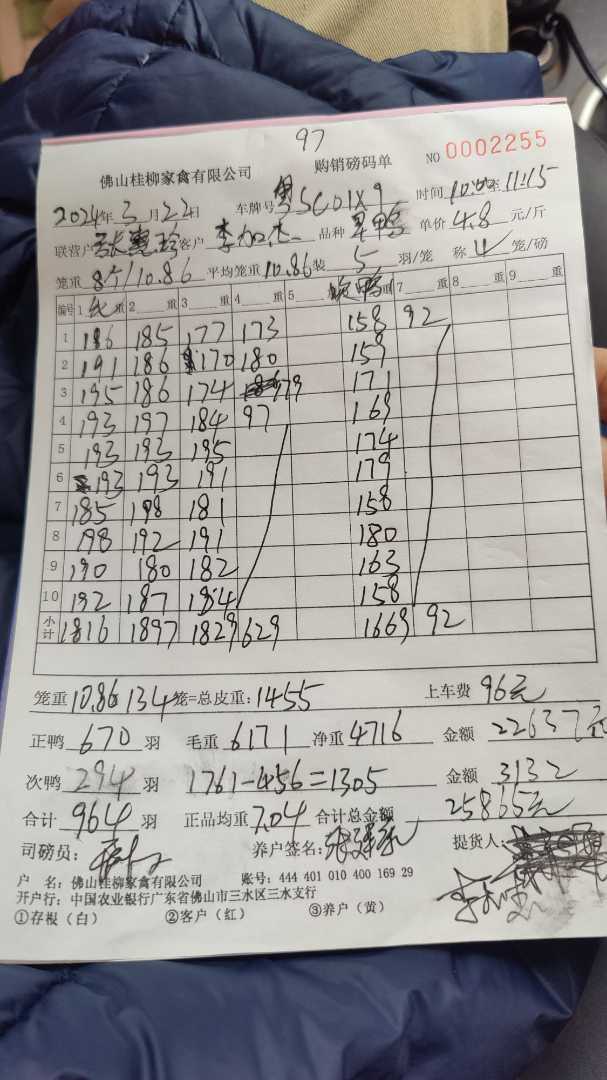 97
佛山桂柳家禽有限公司 购销磅码单 NO 0002255
2024年3月22日 车牌号 粤SC01X9 时间 10:00至11:15
联营户 客户 李加杰 品种 单价 4.8 元/斤
笼重 8个/10.86 平均笼重 10.86 装 5 羽/笼 称 4 笼/磅
编号 1 重 2 重 3 重 4 重 5 重 7 重 8 重 9 重
1 186 185 177 173 158 92
2 191 186 170 180 159
3 195 186 174 179 171
4 193 197 184 97 169
5 193 193 195 174
6 193 193 191 179
7 185 198 181 158
8 198 192 191 180
9 190 180 182 163
10 192 187 184 158
小计 1816 1897 1829 629 1669 92
笼重 10.86 134 笼=总皮重: 1455 上车费 96元
正鸭 670 羽 毛重 6171 净重 4716 金额 22637元
次鸭 294 羽 1761-456=1305 金额 3132
合计 964 羽 正品均重 7.04 合计总金额 25865元
司磅员: 养户签名: 提货人:
户 名: 佛山桂柳家禽有限公司 账号: 444 401 010 400 169 29
开户行: 中国农业银行广东省佛山市三水区三水支行
①存根（白） ②客户（红） ③养户（黄）